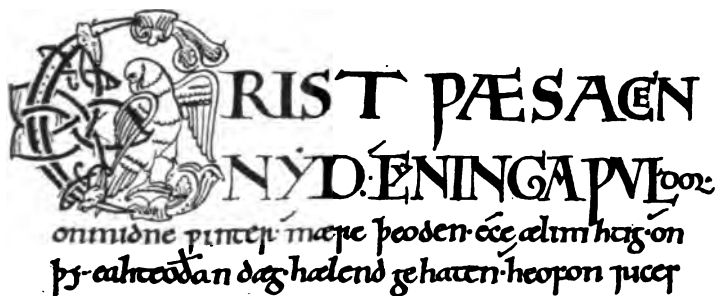 CRIST ǷÆS ACEN
NẎD· CẎNINGA ǷVLdor·
onmidne ƿinter· mære þeoden· éce ælmihtig· ón
þy eahteoðan dæg· hælend gehaten· heofon rices